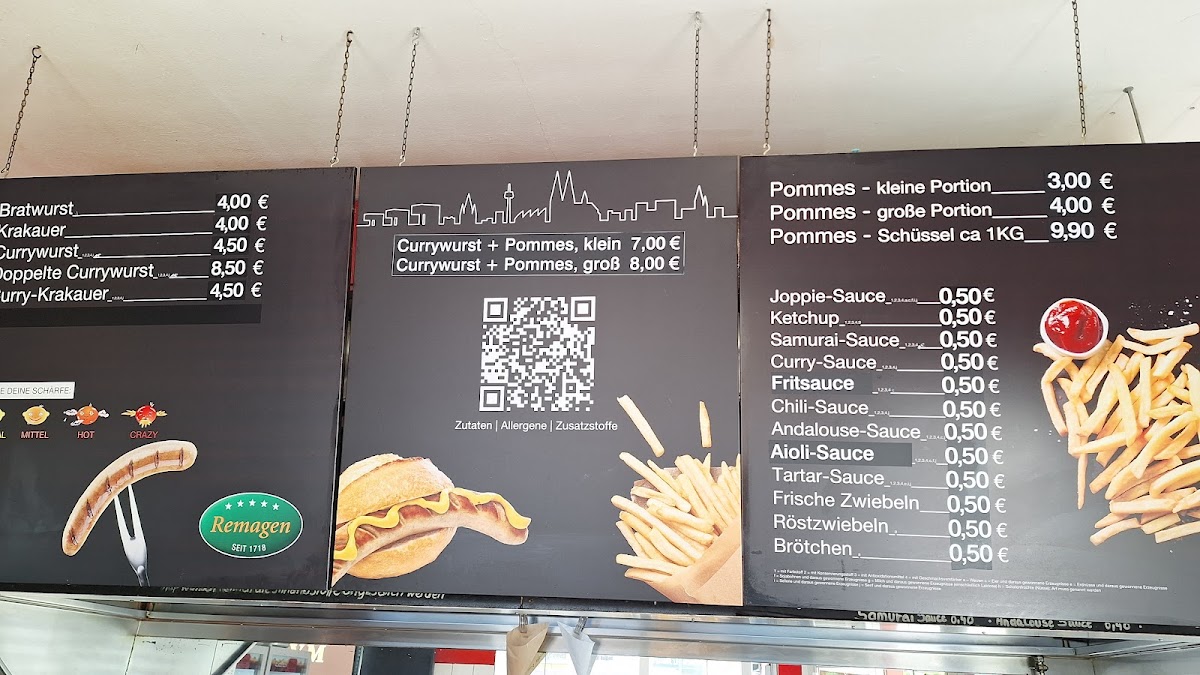 Bratwurst 4,00 €
Krakauer 4,00 €
Currywurst 4,50 €
Doppelte Currywurst 8,50 €
Curry-Krakauer 4,50 €
E DEINE SCHÄRFE.
AL MITTEL HOT CRAZY
Remagen
SEIT 1718
Currywurst + Pommes, klein 7,00 €
Currywurst + Pommes, groß 8,00 €
Zutaten | Allergene | Zusatzstoffe
Pommes - kleine Portion 3,00 €
Pommes - große Portion 4,00 €
Pommes - Schüssel ca 1KG 9,90 €
Joppie-Sauce 0,50 €
Ketchup 0,50 €
Samurai-Sauce 0,50 €
Curry-Sauce 0,50 €
Fritsauce 0,50 €
Chili-Sauce 0,50 €
Andalouse-Sauce 0,50 €
Aioli-Sauce 0,50 €
Tartar-Sauce 0,50 €
Frische Zwiebeln 0,50 €
Röstzwiebeln 0,50 €
Brötchen 0,50 €
Samurai Sauce 0,40 · Andalouse Sauce 0,40